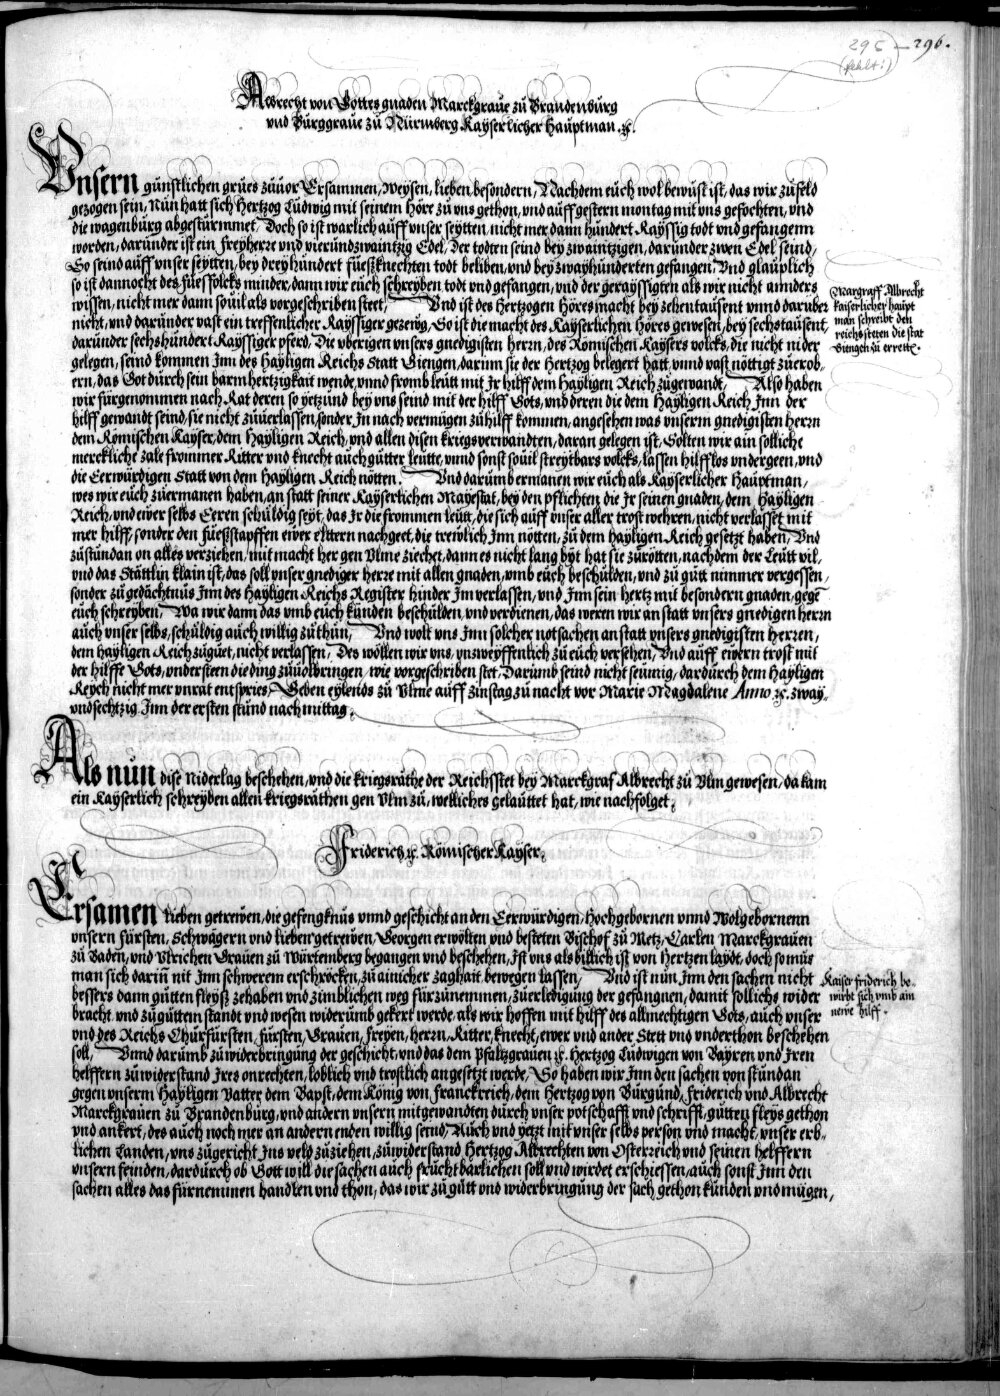 295 — 296.
(fehlt!)
Albrecht von Gottes gnaden Marckgraue zů Brandenburg
vnd Burggraue zů Nürmberg Kayserlicher Hauptman .ꝛc.
Vnsern günstlichen grües zuuor Ersammen, Weysen, lieben besondern, Nachdem euch wol bewust ist, das wir zů feld
gezogen sein, Nůn hatt sich Hertzog Ludwig mit seinem Höre zů vns gethon, vnd auff gestern montag mit vns gefochten, vnd
die wagenburg abgesturmmet, Doch so ist warlich auff vnser seytten nicht mer dann hundert Kayssig todt vnd gefangenn
worden, darunder ist ein Freyherr vnd vierundzwaintzig Edel, Der todten seind bey zwaintzigen, darunder zwen Edel seind,
So seind auff vnser seytten, bey dreyhundert fueszknechten todt beliben, vnd bey zwayhunderten gefangen, Vnd glauplich
so ist dannocht des fuesfolcks minder, dann wir euch schreyben todt vnd gefangen, vnd der gerayssigten als wir nicht ainders
wissen, nicht mer dann souil als vorgeschriben steet, Vnd ist des Hertzogen Höres macht bey zehentausent vnnd daruber
nicht, vnd darunder vast ein treffenlicher Kayssiger gezewg, So ist die macht des Kayserlichen Höres gewesen, bey sechstausent,
darunder sechshundert Kayssiger pferd, Die vberigen vnsers gnedigisten herrn, des Römischen Kaysers volcks, die nicht nider
gelegen, seind kommen Inn des Hayligen Reichs Statt Giengen, darum sie der Hertzog belegert hatt, vnnd vast nöttigt zuerob-
ern, das Got durch sein barmhertzigkait wende, vnnd fromb leutt mit Jr hilff dem Hayligen Reich zůgewandt, Also haben
wir fürgenommen nach Rat deren so yetzund bey vns seind mit der hilff Gots, vnd deren die dem Hayligen Reich Inn der
hilff gewandt seind, sie nicht zuuerlassen, sonder In nach vermügen zů hilff kommen, angesehen was vnserm gnedigisten herrn
dem Römischen Kayser, dem Hayligen Reich, vnd allen disen kriegsverwandten, daran gelegen ist, Solten wir ain solliche
merckliche zale frommer Ritter vnd knecht auch gutter leutte, vnnd sonst souil streytbars volcks, lassen hilfflos vndergeen, vnd
die Eerwürdigen Statt von dem Hayligen Reich nötten. Vnd darumb ermanen wir euch als Kayserlicher Hauptman,
wes wir euch zuermanen haben, an statt seiner Kayserlichen Mayestat, bey den pflichten die Jr seinen gnaden, dem Hayligen
Reich, vnd ewer selbs Eeren schuldig seyt, das Jr die frommen leutt, die sich auff vnser aller trost wehren, nicht verlasset mit
mer hilff, sonder den fueszstapffen ewer eltern nachgeet, die trewlich Inn nötten, zů dem Hayligen Reich gesetzt haben, Vnd
zůstundan on alles verziehen, mit macht her gen Vlme ziehet, dann es nicht lang byt hat sie zurötten, nachdem der Leutt vil,
vnd das Stättlin klain ist, das soll vnser gnediger herre mit allen gnaden, vmb euch beschulden, vnd zů gutt nimmer vergessen,
sonder zů gedächtnus Inn des Hayligen Reichs Register hinder Im verlassen, vnd Inn sein hertz mit besondern gnaden, gegē
euch schreyben, Wa wir dann das vmb euch kunden beschulden, vnd verdienen, das weren wir an statt vnsers gnedigen herrn
auch vnser selbs, schuldig auch willig zů thun, Vnd wolt vns Inn solcher notsachen an statt vnsers gnedigisten herren,
dem hayligen Reich zůguet, nicht verlassen, Des wöllen wir vns, vnzweyffenlich zů euch versehen, Vnd auff ewern trost mit
der hilffe Gots, vndersteen die ding zuuolbringen, wie vorgeschriben stet, Darumb seind nicht seumig, dardurch dem Hayligen
Reych nicht mer vnrat entspries, Geben eylends zů Vlme auff zinstag zů nacht vor Marie Magdalene Anno .ꝛc. zway-
vndsechtzig Inn der ersten stund nach mittag.
Margraff Albrecht
kaiserlicher haupt
man schreibt den
reichsstetten die stat
Giengen zu erretten.
Als nun dise Niderlag beschehen, vnd die kriegsräthe der Reichsstet bey Marckgraf Albrecht zů Vlm gewesen, da kam
ein Kayserlich schreyben allen kriegsräthen gen Vlm zů, welliches gelauttet hat, wie nachfolget.
Friderich .ꝛc. Römischer Kayser.
Ersamen lieben getrewen, die gefengknus vnnd geschicht an den Eerwürdigen, Hochgebornen vnnd Wolgebornenn
vnsern Fürsten, Schwägern vnd lieben getrewen, Georgen erwölten vnd besteten Bischof zů Metz, Carlen Marckgrauen
zů Baden, vnd Vlrichen Grauen zů Würtemberg begangen vnd beschehen, Ist vns als billich ist von Hertzen laydt, doch so mus
man sich darin̄ nit Inn schwerem erschröcken, zů ainicher zaghait bewegen lassen, Vnd ist nun Inn den sachen nicht
bessers dann gutten fleysz zehaben vnd zimblichen weg fürzunemmen, zů erledigung der gefangnen, damit sollichs wider
bracht, vnd zů guttem standt vnd wesen widerumb gekert werde, als wir hoffen mit hilff des allmechtigen Gots, auch vnser
vnd des Reichs Churfürsten, Fürsten, Grauen, Freyen, herrn, Ritter, knecht, ewer vnd ander Stett vnd vnderthon beschehen
soll, Vnnd darumb zů widerbringung der geschicht, vnd das dem Pfaltzgrauen .ꝛc. Hertzog Ludwigen von Bayren vnd Iren
helffern zů widerstand Ires onrechten, loblich vnd trostlich angesetzt werde, So haben wir Inn den sachen von stundan
gegen vnserm Hayligen Vatter dem Bapst, dem König von Franckreich, dem Hertzog von Burgund, Friderich vnd Albrecht
Marckgrauen zů Brandenburg, vnd andern vnsern mitgewandten durch vnser potschafft vnd schrifft, gutten fleys gethon
vnd ankert, des auch noch mer an andern enden willig seind, Auch vnd yetzt mit vnser selbs person vnd macht, vnser erb-
lichen Landen, vns zůgericht Ins veld zůziehen, zů widerstand Hertzog Albrechten von Osterreich vnd seinen helffern
vnsern feinden, dardurch ob Gott will die sachen auch fruchtbarlichen soll vnd wirdet erschiessen, auch sonst Inn den
sachen alles das fürnemmen handlen vnd thon, das wir zů gutt vnd widerbringung der sach gethon kunden vnd mügen,
Kaiser friderich be-
wirbt sich vmb ain
newe hilff.